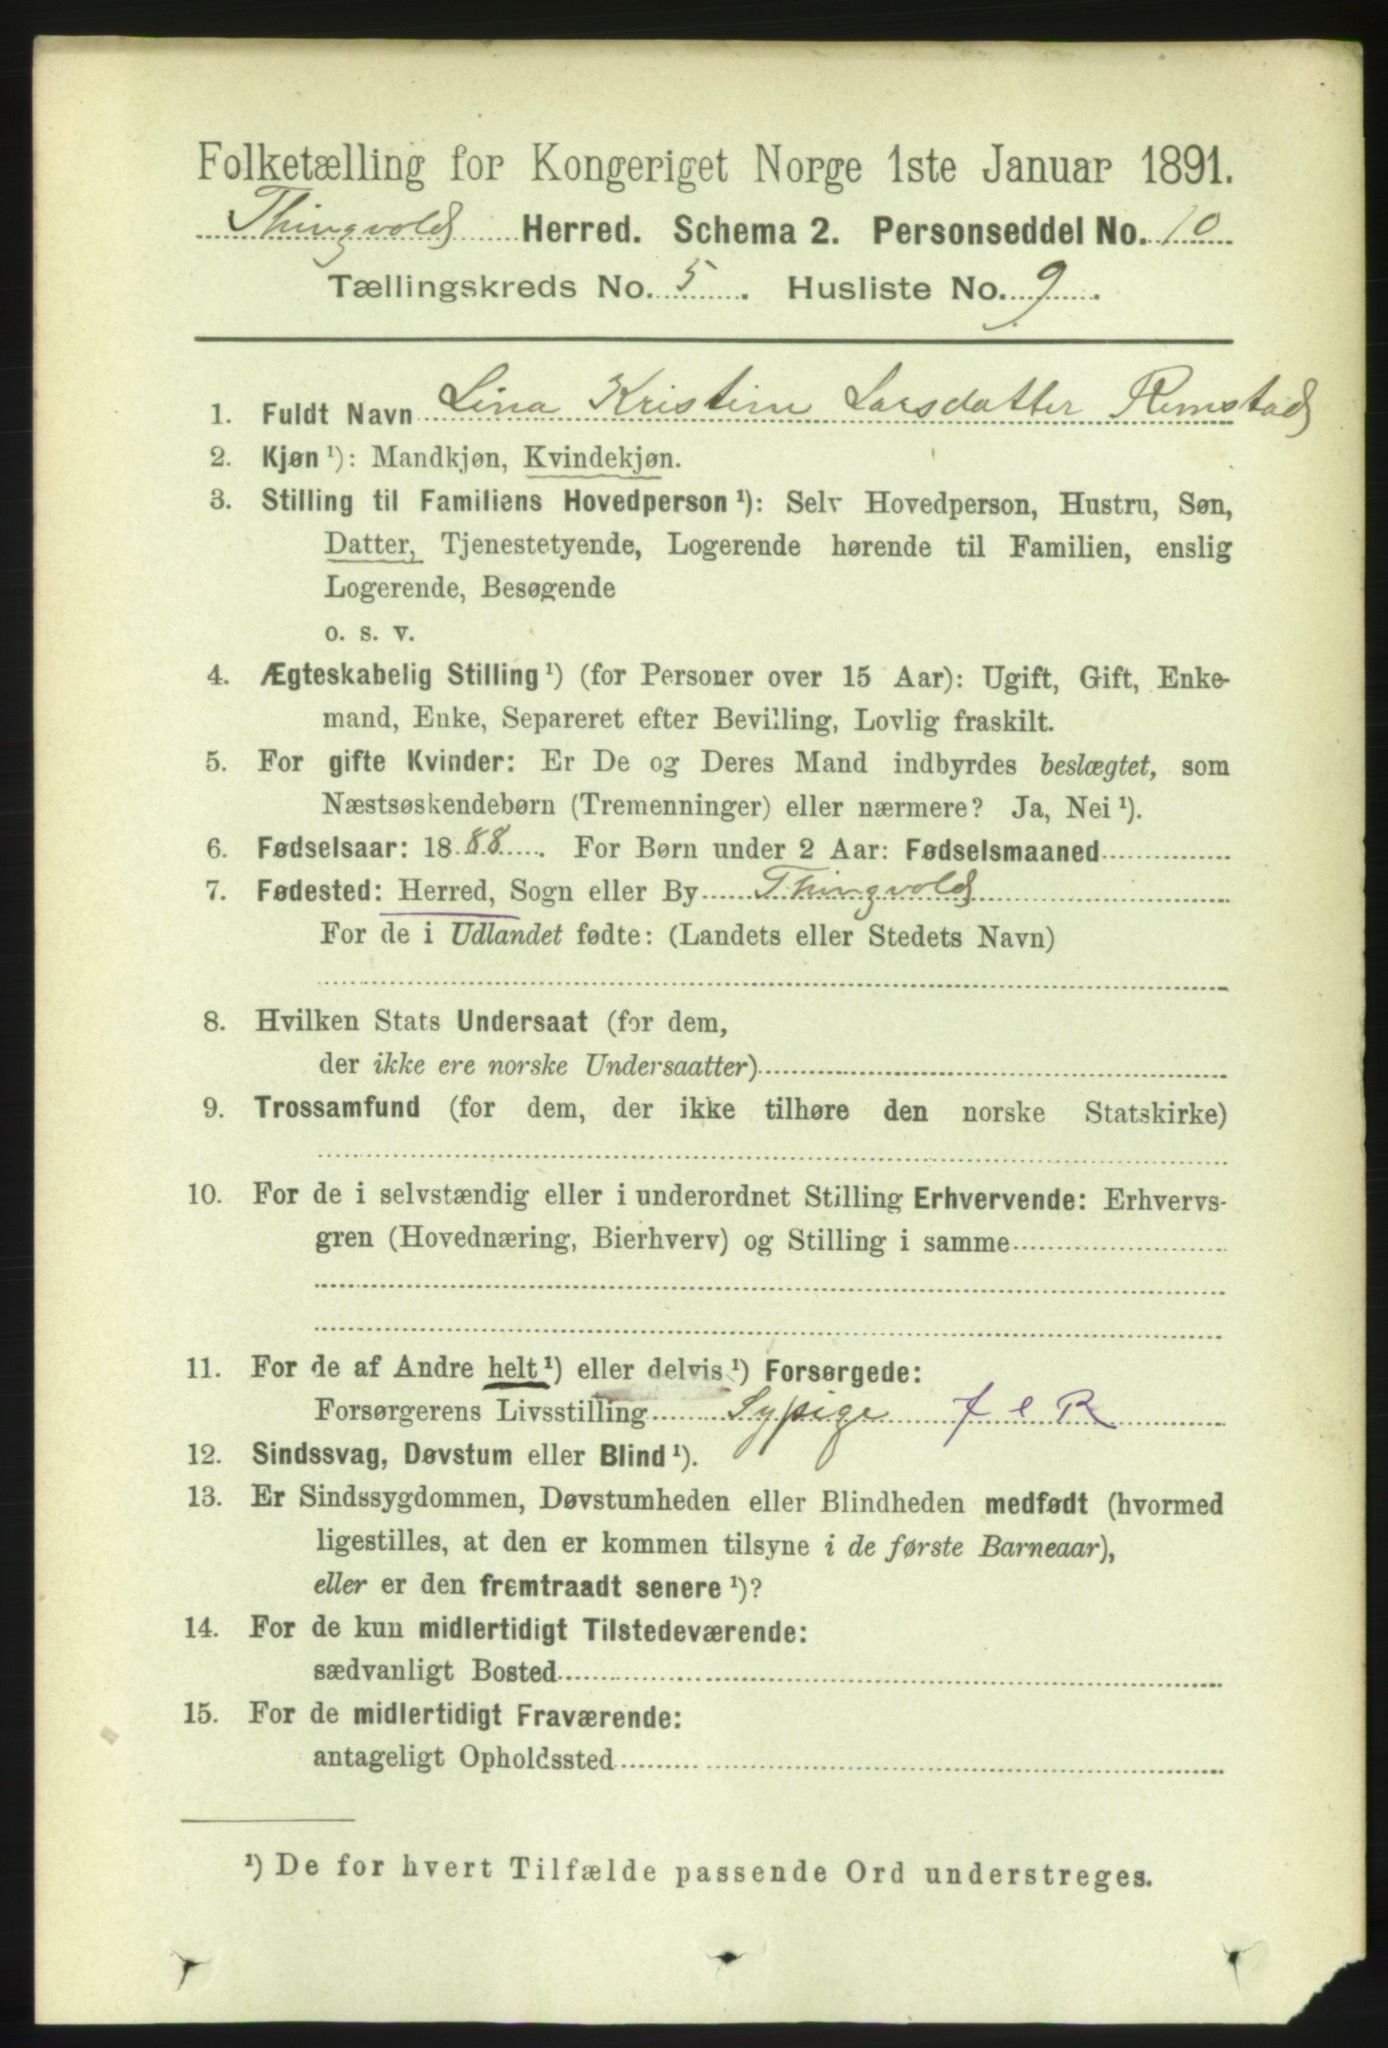 Folketælling for Kongeriget Norge 1ste Januar 1891.
Thingvold Herred. Schema 2. Personseddel No. 10
Tællingskreds No. 5. Husliste No. 9.
1. Fuldt Navn Lina Kristine Larsdatter Rimstad
2. Kjøn ¹): Mandkjøn, Kvindekjøn.
3. Stilling til Familiens Hovedperson ¹): Selv Hovedperson, Hustru, Søn,
Datter, Tjenestetyende, Logerende hørende til Familien, enslig
Logerende, Besøgende
o. s. v.
4. Ægteskabelig Stilling ¹) (for Personer over 15 Aar): Ugift, Gift, Enke-
mand, Enke, Separeret efter Bevilling, Lovlig fraskilt.
5. For gifte Kvinder: Er De og Deres Mand indbyrdes beslægtet, som
Næstsøskendebørn (Tremenninger) eller nærmere? Ja, Nei ¹).
6. Fødselsaar: 1888. For Børn under 2 Aar: Fødselsmaaned
7. Fødested: Herred, Sogn eller By Thingvold
For de i Udlandet fødte: (Landets eller Stedets Navn)
8. Hvilken Stats Undersaat (for dem,
der ikke ere norske Undersaatter)
9. Trossamfund (for dem, der ikke tilhøre den norske Statskirke)
10. For de i selvstændig eller i underordnet Stilling Erhvervende: Erhvervs-
gren (Hovednæring, Bierhverv) og Stilling i samme
11. For de af Andre helt ¹) eller delvis ¹) Forsørgede:
Forsørgerens Livsstilling Sypige f e R
12. Sindssvag, Døvstum eller Blind ¹).
13. Er Sindssygdommen, Døvstumheden eller Blindheden medfødt (hvormed
ligestilles, at den er kommen tilsyne i de første Barneaar),
eller er den fremtraadt senere ¹)?
14. For de kun midlertidigt Tilstedeværende:
sædvanligt Bosted
15. For de midlertidigt Fraværende:
antageligt Opholdssted
¹) De for hvert Tilfælde passende Ord understreges.